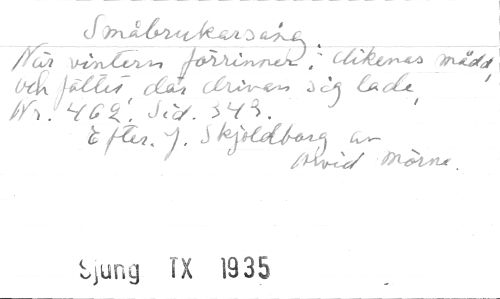 Småbrukarsång.
När vintern förrinner i dikenas mådd,
och fältet där drivan sig lade,
Nr. 462. Sid. 343.
Efter J. Skjoldborg av
Arvid Mörne.
Sjung IX 1935